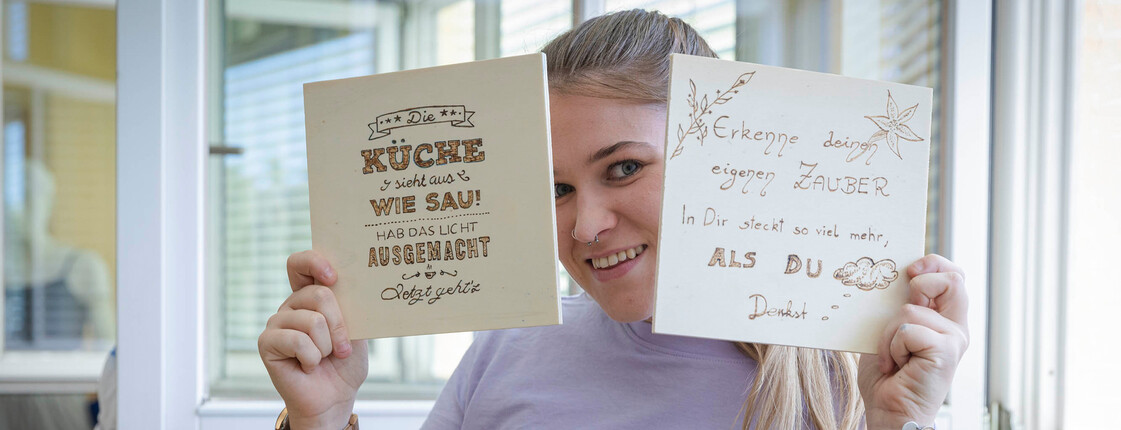 Die
KÜCHE
sieht aus
WIE SAU!
HAB DAS LICHT
AUSGEMACHT
Jetzt geht'z
Erkenne deinen
eigenen ZAUBER
In Dir steckt so viel mehr,
ALS DU
Denkst